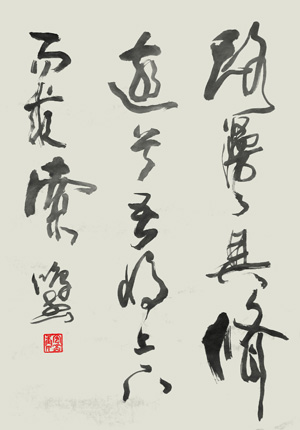 路漫々其修
遠兮吾将上下
而求索